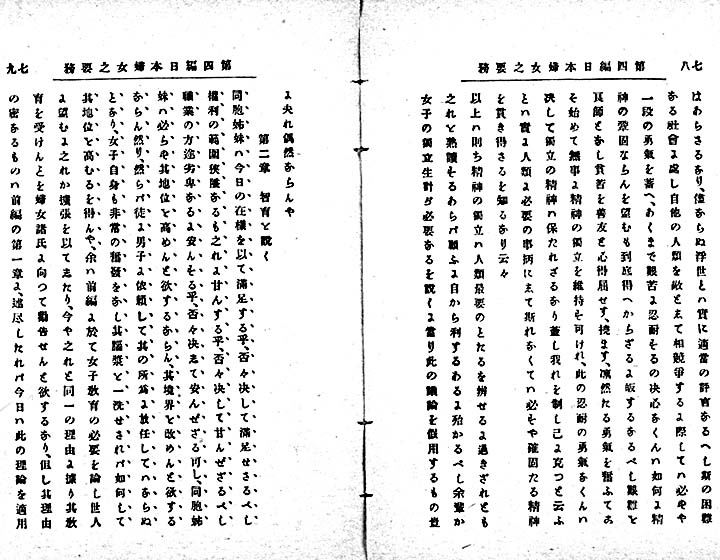 七八
第四編日本婦女之要務
はあらさるなり、儘ならぬ浮世とハ實に適當の評言なるへし斯の困難
なる社會よ處し自他の人類を敵とゑて相競爭するよ際してハ必ヤヤ
一段の勇氣を蓄へ、あくまで艱苦よ忍耐そるの决心なくんハ如何よ精
神の鞏固ならんを望むも到底得へからざるよ皈するなるべし艱難と
良師となし貧苦を善友と心得屈せず、撓ます、凛然たる勇氣を奮ふてこ
そ始めて無事よ精神の獨立を維持を可けれ、此の忍耐の勇氣なくんハ
决して獨立の精神ハ保たれざるなり蓋し我れを制し己よ克つと云ふ
とハ實よ人類よ必要の事柄にゑて斯れなくてハ必そや確固たる精神
を貫き得さるを知るなり云々
以上ハ則ち精神の獨立ハ人類最要のとたるを辨せるよ過きざれとも
之れと熟讀そるあらバ願ふよ自から利するあるよ殆かるべし余輩か
女子の獨立生計ぢ必要なるを說くよ當り此の議論を假用するもの豈
七九
第四編日本婦女之要務
よ夫れ偶然ならんや
第二章 智育と說く
同胞姊妹ハ今日の在樣を以て滿足する乎、否々决して滿足せさるべし
權利の範圍狹隘なるも之れよ甘んする乎、否々决して甘んぜざるべし
職業の方迄劣卑なるよ安んそる乎、否々决ゑて安んぜざる可し、同胞姊
妹ハ必らや其地位と高めんと欲するならん、其境界と改めんと欲する
ならん、然り、然らバ徒よ男子よ依賴して其の所爲よ放任してハならぬ
となり、女子自身も非常の奮發をなし其腦漿と一洗せされバ如何して
其地位と高むるを得んや、余ハ前編よ於て女子敎育の必要を論し世人
よ望むよ之れか擴張を以てゑたり、今や之れと同一の理由よ據り其敎
育を受けんとを婦女諸氏よ向つて勸告せんと欲するなり、但し其理由
の密なるものハ前編の第一章よ、述尽したれバ今日ハ此の理論を適用